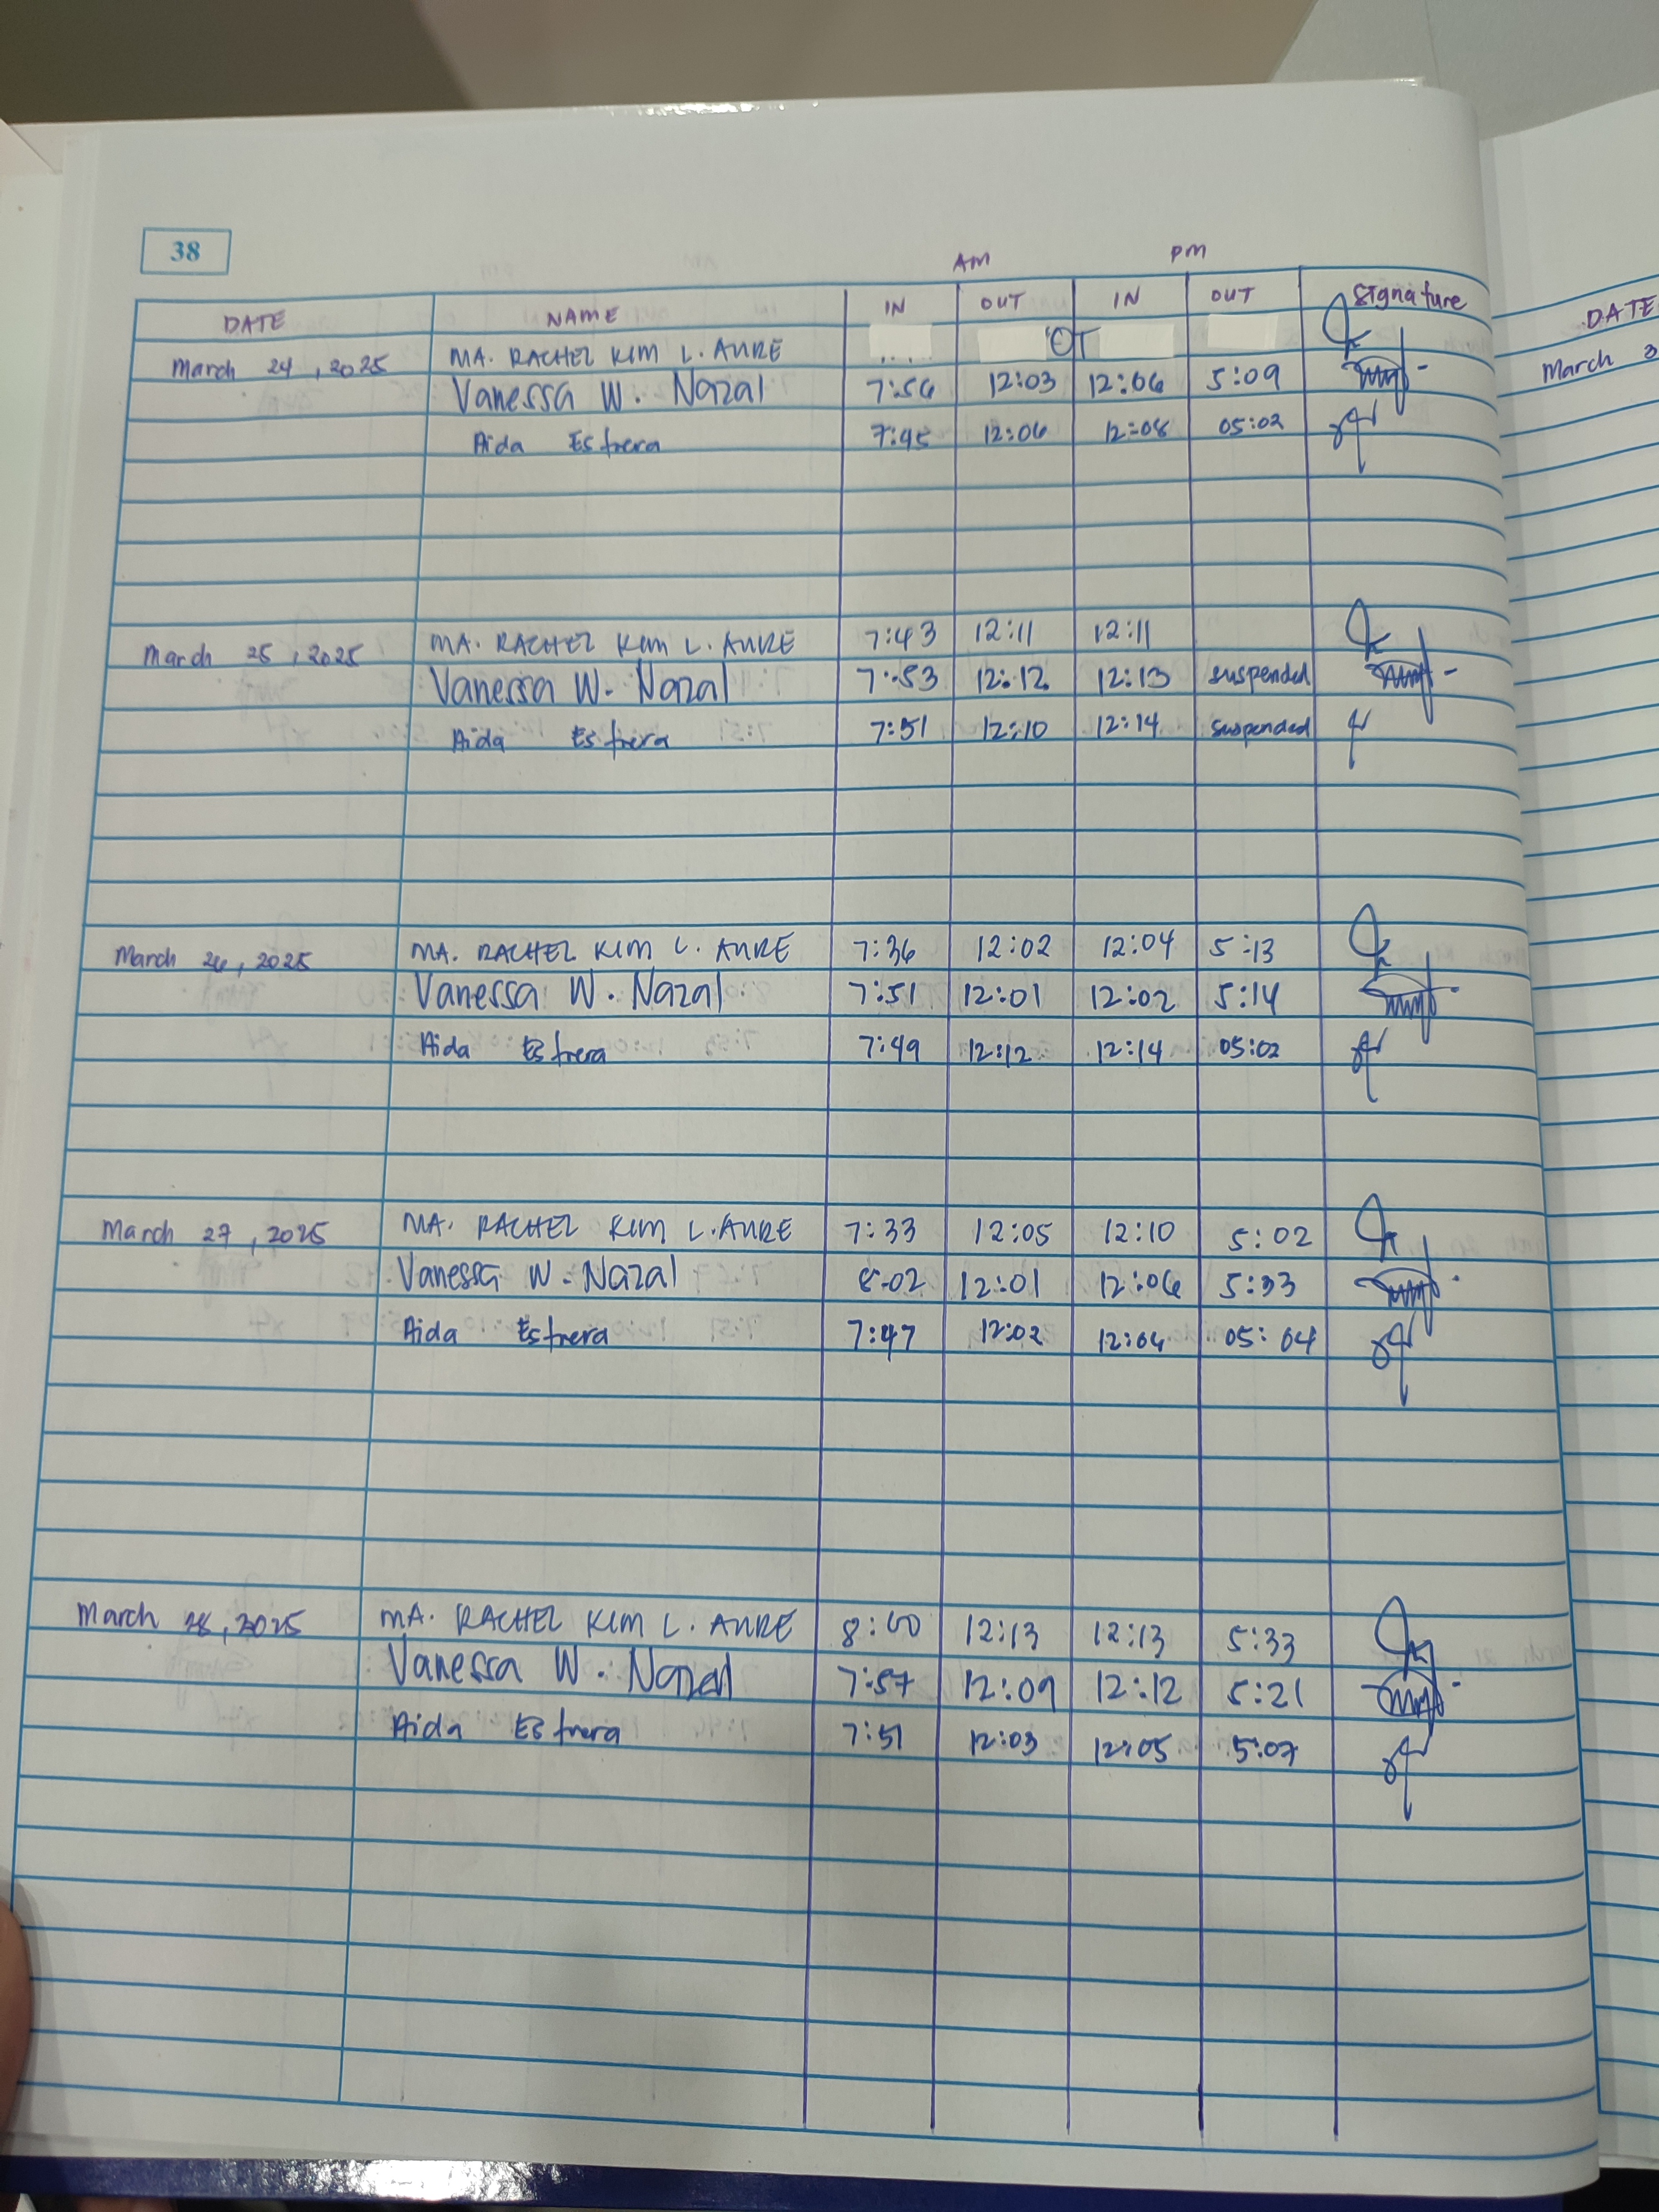 38
AM PM
DATE NAME IN OUT IN OUT Signature
March 24, 2025 MA. RACHEL KIM L. AURE OT
Vanessa W. Nazal 7:56 12:03 12:06 5:09
Aida Esfrera 7:45 12:06 12:08 05:02
March 25, 2025 MA. RACHEL KIM L. AURE 7:43 12:11 12:11
Vanessa W. Nazal 7:53 12:12 12:13 suspended
Aida Esfrera 7:51 12:10 12:14 suspended
March 26, 2025 MA. RACHEL KIM L. AURE 7:36 12:02 12:04 5:13
Vanessa W. Nazal 7:51 12:01 12:02 5:14
Aida Esfrera 7:49 12:12 12:14 05:02
March 27, 2025 MA. RACHEL KIM L. AURE 7:33 12:05 12:10 5:02
Vanessa W. Nazal 8:02 12:01 12:06 5:33
Aida Esfrera 7:47 12:02 12:06 05:04
March 28, 2025 MA. RACHEL KIM L. AURE 8:00 12:13 12:13 5:33
Vanessa W. Nazal 7:57 12:09 12:12 5:21
Aida Esfrera 7:51 12:03 12:05 5:07
DATE
March